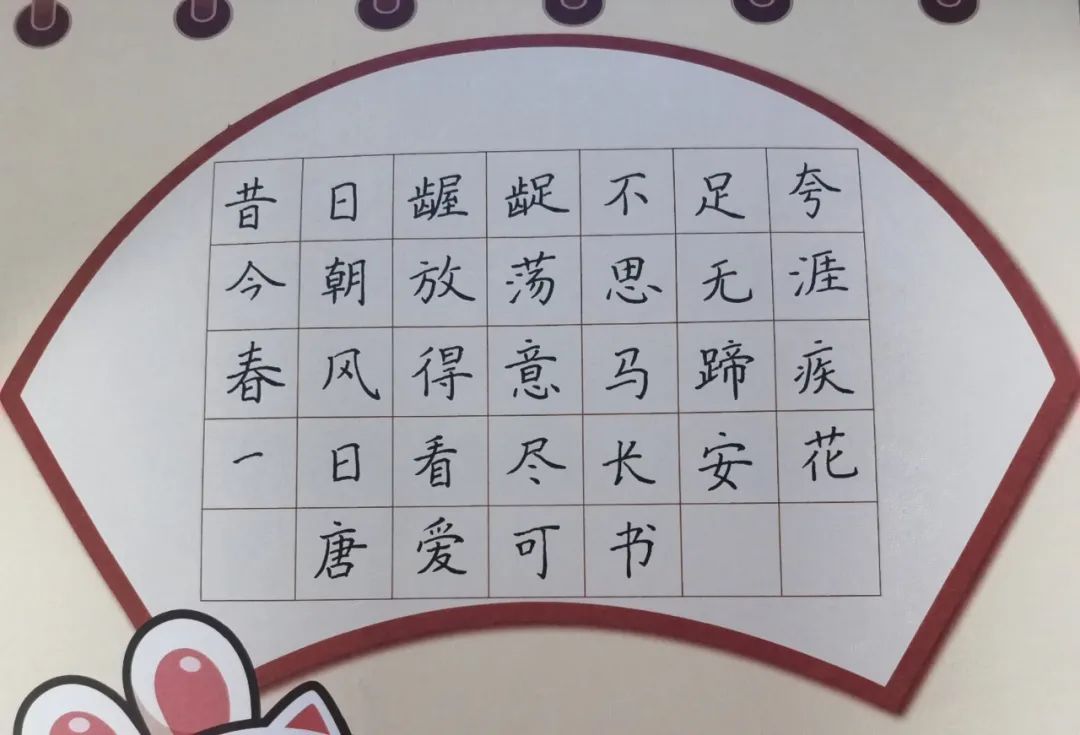 昔日龌龊不足夸
今朝放荡思无涯
春风得意马蹄疾
一日看尽长安花
唐爱可书